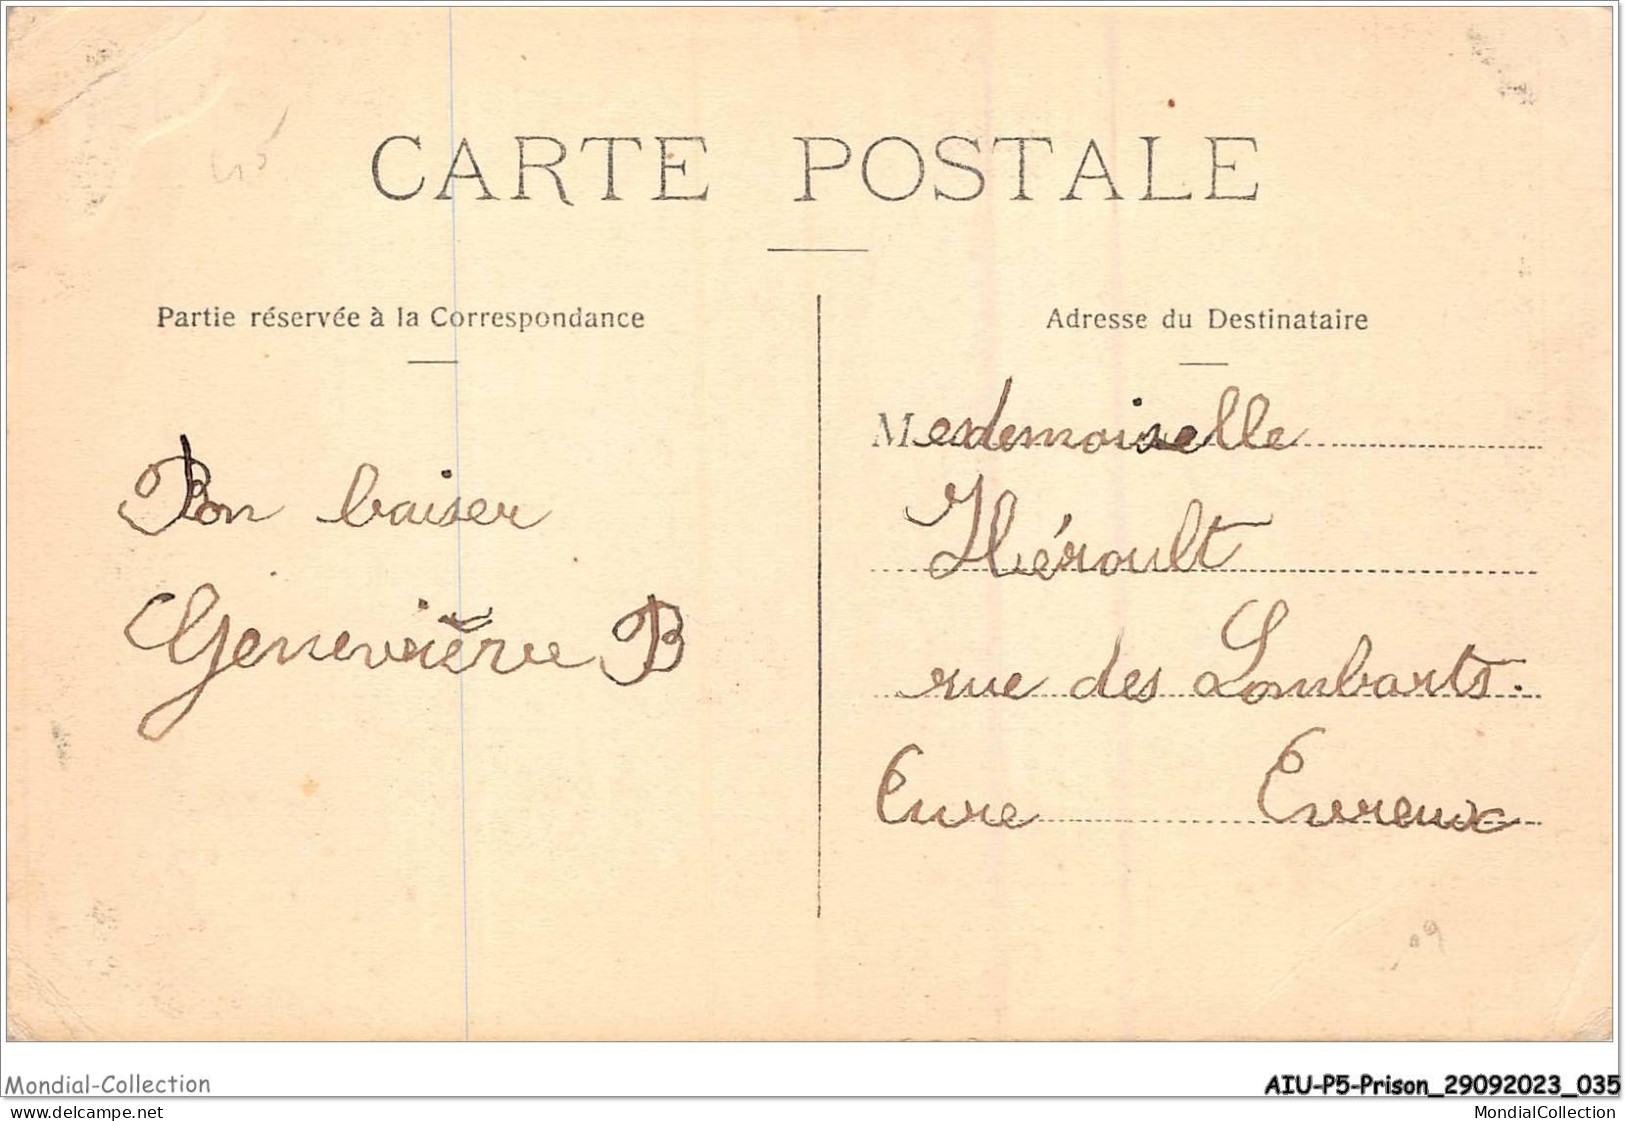 CARTE POSTALE
Partie réservée à la Correspondance
Bon baiser
Geneviève B
Adresse du Destinataire
Mesdemoiselle
Hérault
rue des Lombarts.
Eure Evreux
Mondial-Collection
AIU-P5-Prison_29092023_035
delcampe.net
MondialCollection